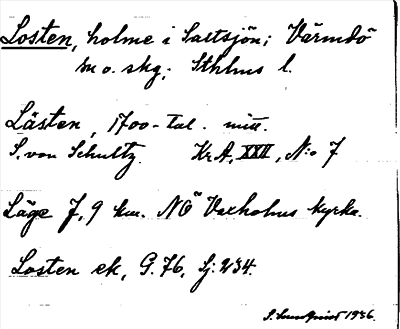 Losten, holme i Saltsjön; Värmdö
sn o. skg; Sthlms l.
Lästen, 1700-tal. mitt.
S. von Schultz. Kr.A, XXII, N:o 7
Läge 7,9 km. NÖ Vaxholms kyrka.
Losten ek, G.76, Sj: 234.
S. Lundqvist 1936.